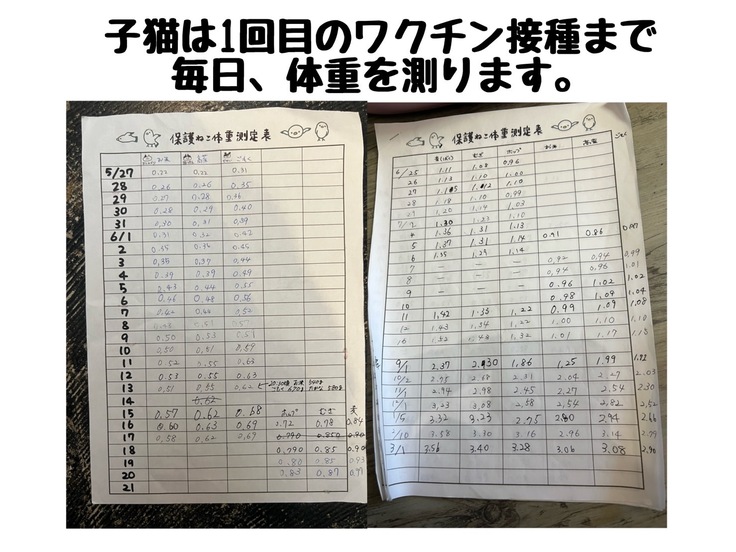 子猫は1回目のワクチン接種まで
毎日、体重を測ります。
保護ねこ体重測定表
5/27 0.22 0.22 0.31
28 0.26 0.26 0.35
29 0.27 0.28 0.36
30 0.28 0.29 0.40
31 0.30 0.31 0.39
6/1 0.31 0.32 0.42
2 0.35 0.36 0.45
3 0.35 0.37 0.44
4 0.39 0.39 0.49
5 0.43 0.44 0.55
6 0.46 0.48 0.56
7 0.52
8
9 0.50 0.53 0.51
10 0.50 0.51 0.59
11 0.52 0.55 0.63
12 0.53 0.55 0.63
13 0.51 0.55 0.62
14 0.62
15 0.57 0.62 0.68 ホップ むぎ 麦
16 0.60 0.63 0.69 0.78 0.84
17 0.58 0.62 0.67 0.790 0.850 0.90
18 0.790 0.85 0.90
19 0.80 0.85 0.93
20 0.83 0.87
21
保護ねこ体重測定表
むぎ ホップ
6/25 1.11 1.08 0.96
26 1.13 1.10 1.00
27 1.10
28 1.18 1.10 0.99
29 1.20 1.14 1.03
1.30 1.22 1.10
4 1.36 1.31 1.13
5 1.37 1.31 1.14 0.91 0.86
6 1.35 1.29 1.14
7 — — — 0.92 0.94 0.99
8 — — — 0.94 0.96 1.01
9 — — — 0.96 1.02 1.02
10 0.98 1.09 1.04
11 1.42 1.35 1.22 0.99 1.09 1.08
12 1.43 1.34 1.22 1.00 1.10 1.10
16 1.52 1.44 1.32 1.01 1.17 1.18
9/1 2.37 2.30 1.86 1.25 1.99
10/2 2.75 2.31 2.04 2.27 2.03
2.94 2.98 2.45 2.27 2.54 2.30
3.23 3.08 2.58 2.54 2.82 2.52
1/5 3.32 3.23 2.75 2.80 2.94 2.66
2/10 3.58 3.30 3.16 2.96 3.14 2.79
3/1 3.56 3.40 3.28 3.06 3.08 2.90